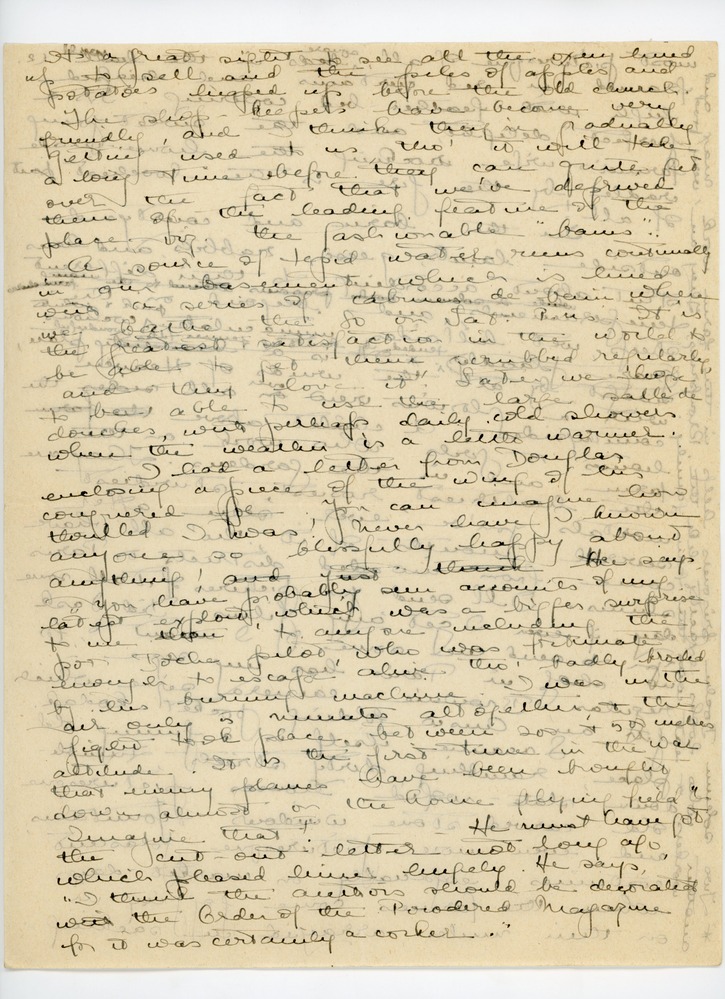 It's a great sight to see all the oxen lined
up to sell and the piles of apples and
potatoes heaped up before the old church.
The shop keepers have become very
friendly, and I think they're gradually
getting used to us tho' it will take
a long time before they can quite get
over the fact that we've deprived
them of the leading feature of the
place viz the fashionable "bains".
A source of tepid water runs continually
in our basement which is lined
with a series of cabines de bain where
we bathe the It is
the greatest satisfaction in the world to
be able to get them scrubbed regularly,
and they love it. Later we hope
to be able to use the large salle de
douches, with perhaps daily cold showers
when the weather is a little warmer.
I had a letter from Douglas
enclosing a piece of the wing of his
conquered foe. You can imagine how
thrilled I was! Never have I known
anyone so blissfully happy about
anything! and just He says
"you have probably seen accounts of my
latest exploit which was a bigger surprise
to me than to anyone including the
poor Boche pilot who was fortunate
enough to escape alive tho' badly broiled
by his burning machine. I was in the
air only 5 minutes altogether & the
fight took place between 500 & 150 metres
altitude. It is the first time in the war
that enemy planes have been brought
down almost on the home flying field"
Imagine that! He must have got
the cut-out letter not long ago,
which pleased him hugely. He says,
"I think the authors should be decorated
with the Order of the Powdered Magazine
for it was certainly a corker."